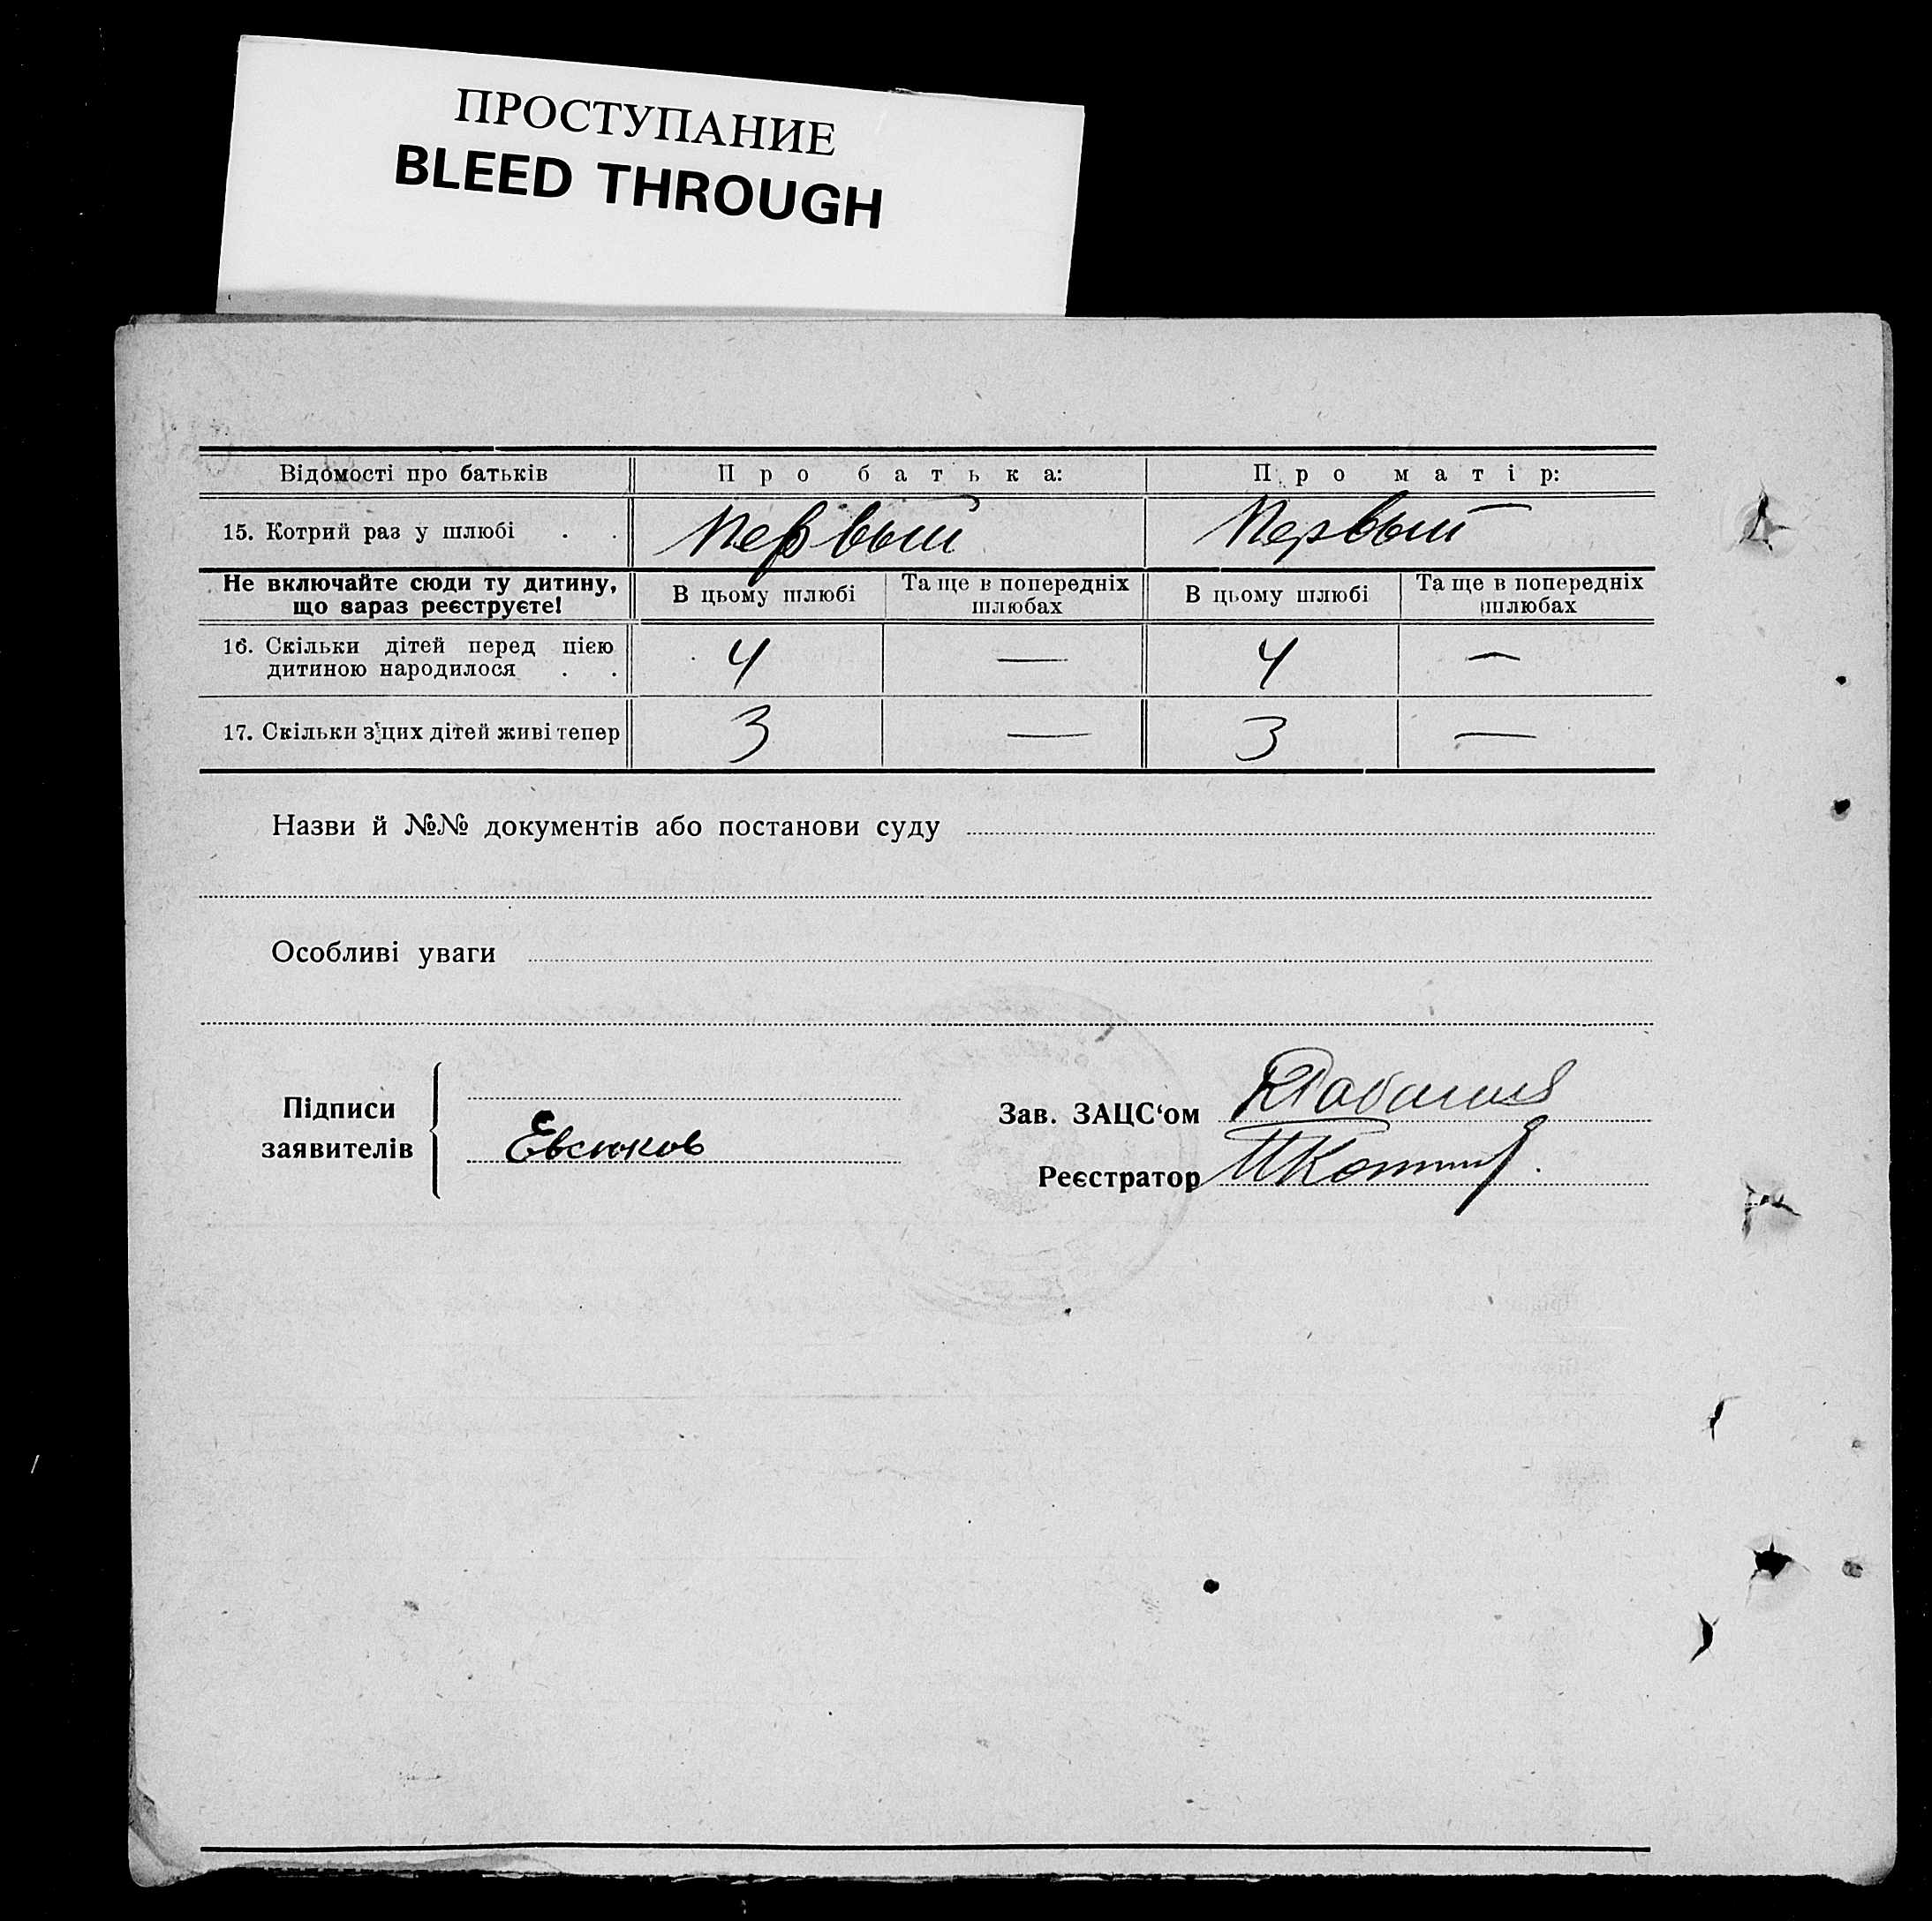 ПРОСТУПАНИЕ
BLEED THROUGH
Відомості про батьків Про батька: Про матір:
15. Котрий раз у шлюбі . . Первый Первый
Не включайте сюди ту дитину, що зараз реєструєте! В цьому шлюбі Та ще в попередніх шлюбах В цьому шлюбі Та ще в попередніх шлюбах
16. Скільки дітей перед цією
дитиною народилося . . 4 — 4 —
17. Скільки з цих дітей живі тепер 3 — 3 —
Назви й №№ документів або постанови суду
Особливі уваги
Підписи
заявителів
Евсюков
Зав. ЗАЦС‘ом
Реєстратор